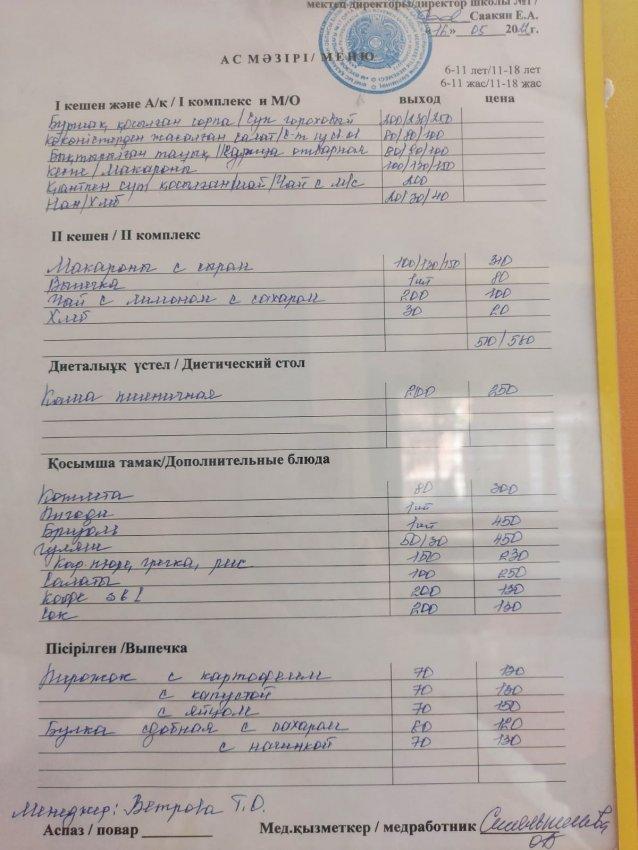 мектеп директоры/директор школы №17
Саакян Е.А.
«16» 05 г.
АС МӘЗІРІ / МЕНЮ
6-11 лет/11-18 лет
6-11 жас/11-18 жас
I кешен және А/қ / I комплекс и М/О выход цена
Бұршақ қосылған сорпа/Суп гороховый 200/250/250
Көкөністерден жасалған салат/ 80/80/100
Бықтырылған тауық / Курица отварная 80/80/100
Кеспе/Макароны 100/130/150
қосылған шай/Чай с м/с 200
Нан/Хлеб 20/30/40
II кешен / II комплекс
Макароны с сыром 100/130/150 310
Выпечка 1шт 80
Чай с лимоном с сахаром 200 100
Хлеб 30 20
510/560
Диеталыұқ үстел / Диетический стол
Каша пшеничная 200 250
Қосымша тамақ/Дополнительные блюда
Котлета 80 300
1шт
Бризоль 1шт 450
Гуляш 50/30 450
Кар. пюре, гречка, рис 150 230
Салаты 100 250
Кофе 3 в 1 200 130
Сок 200 130
Пісірілген /Выпечка
Пирожок с картофелем 70 130
с капустой 70 130
с яйцом 70 150
Булка сдобная с сахаром 80 120
с начинкой 70 130
Менеджер: Ветрова Т.О.
Аспаз / повар Мед.қызметкер / медработник